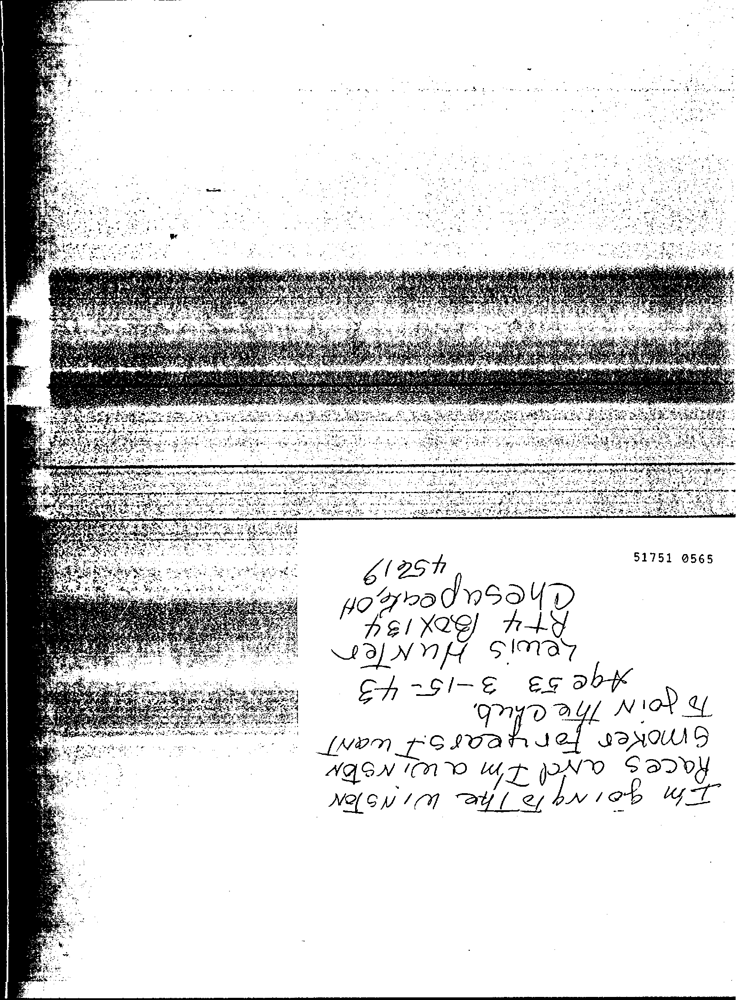 51751 0565
I'm going To The Winston
Races and I'm a winston
Smoker for years. I want
To join The Club.
Age 53 3-15-43
Lewis Hunter
Rt 4 Box 134
Chesapeake, OH
45619